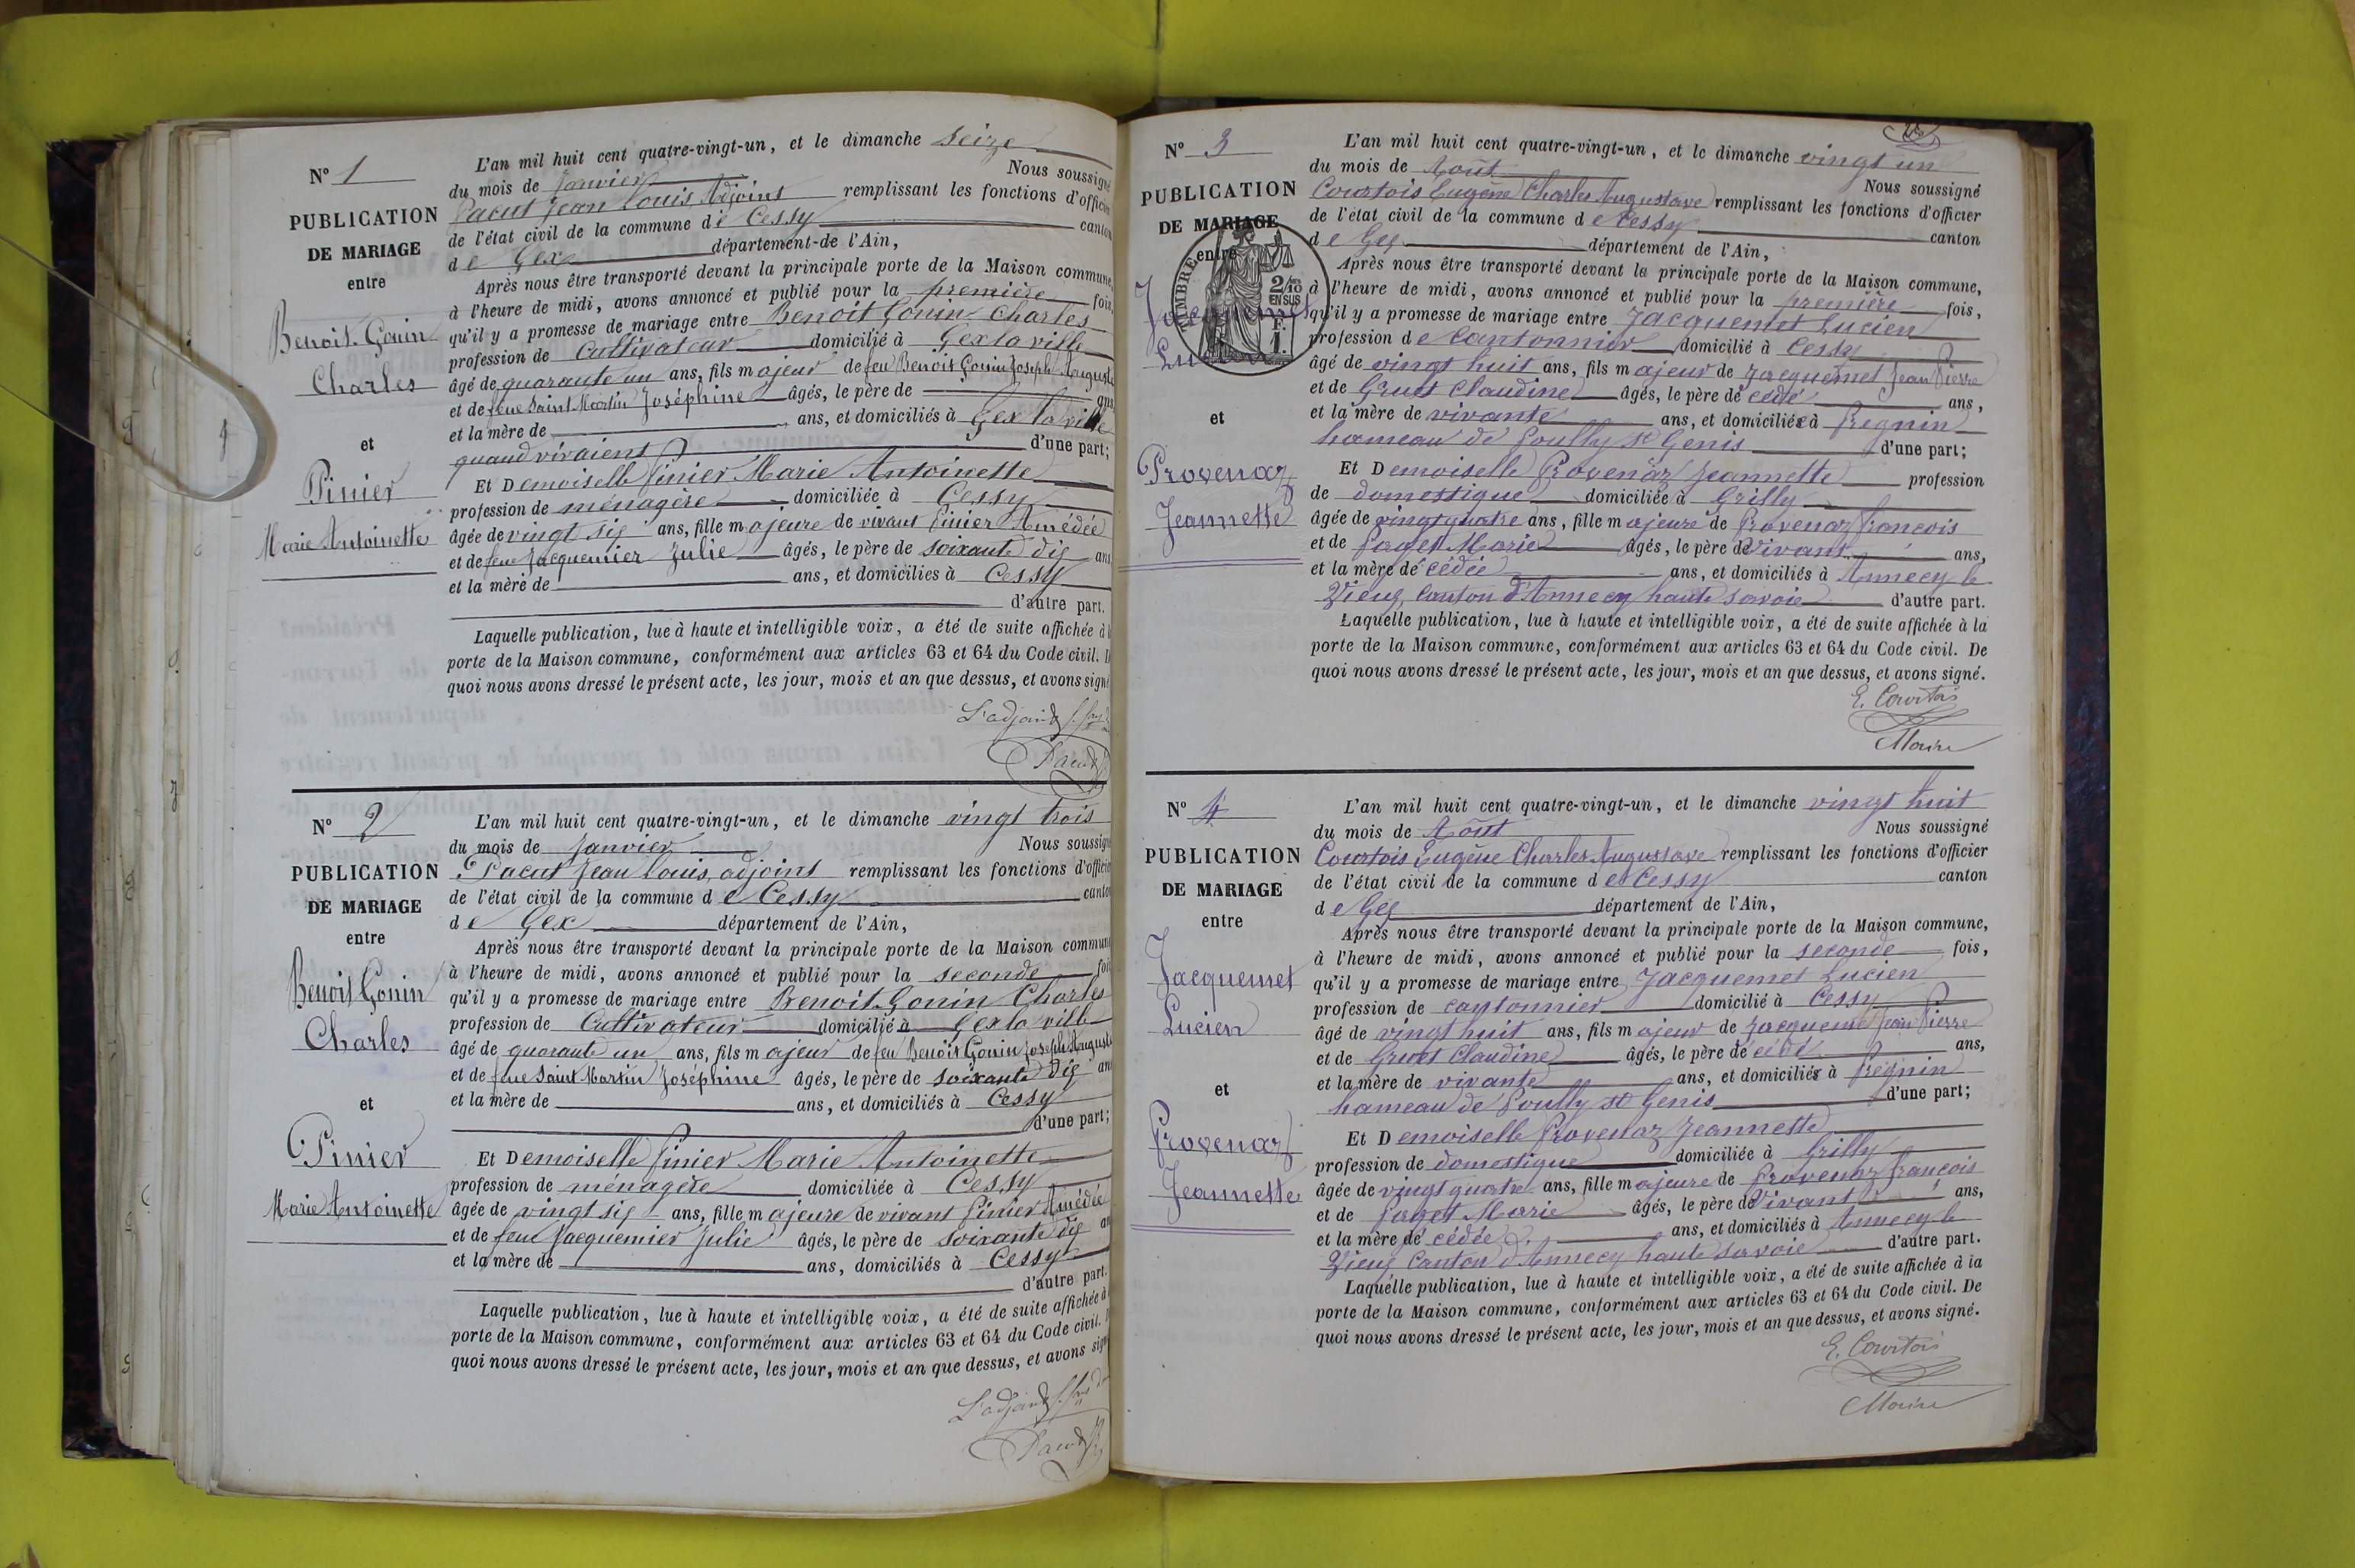 N° 1
PUBLICATION
DE MARIAGE
entre
Benoit-Gonin
Charles
et
Pinier
Marie Antoinette
L'an mil huit cent quatre-vingt-un, et le dimanche seize
du mois de Janvier Nous soussigné
Pacut Jean Louis Adjoint remplissant les fonctions d'officier
de l'état civil de la commune de Cessy canton
de Gex département de l'Ain,
Après nous être transporté devant la principale porte de la Maison commune,
à l'heure de midi, avons annoncé et publié pour la première fois,
qu'il y a promesse de mariage entre Benoit Gonin Charles
profession de Cultivateur domicilié à Gex la ville
âgé de quarante un ans, fils majeur de feu Benoit Gonin Joseph Auguste
et de feue Saint Martin Joséphine âgés, le père de ans
et la mère de ans, et domiciliés à Gex la ville
quand vivaient d'une part;
Et Demoiselle Pinier Marie Antoinette
profession de ménagère domiciliée à Cessy
âgée de vingt six ans, fille majeure de vivant Pinier Amédée
et de feue Jacquemier Julie âgés, le père de soixante dix ans
et la mère de ans, et domiciliés à Cessy
d'autre part.
Laquelle publication, lue à haute et intelligible voix, a été de suite affichée à
porte de la Maison commune, conformément aux articles 63 et 64 du Code civil. D
quoi nous avons dressé le présent acte, les jour, mois et an que dessus, et avons signé
L'adjoint
Pacut
N° 2
PUBLICATION
DE MARIAGE
entre
Benoit Gonin
Charles
et
Pinier
Marie Antoinette
L'an mil huit cent quatre-vingt-un, et le dimanche vingt trois
du mois de Janvier Nous soussigné
Pacut Jean Louis, adjoint remplissant les fonctions d'officier
de l'état civil de la commune de Cessy canton
de Gex département de l'Ain,
Après nous être transporté devant la principale porte de la Maison commune
à l'heure de midi, avons annoncé et publié pour la seconde fois
qu'il y a promesse de mariage entre Benoit Gonin Charles
profession de Cultivateur domicilié à Gex la ville
âgé de quarante un ans, fils majeur de feu Benoit Gonin Joseph Auguste
et de feue Saint Martin Joséphine âgés, le père de soixante dix an
et la mère de ans, et domiciliés à Cessy
d'une part;
Et Demoiselle Pinier Marie Antoinette
profession de ménagère domiciliée à Cessy
âgée de vingt six ans, fille majeure de vivant Pinier Amédée
et de feue Jacquemier Julie âgés, le père de soixante dix an
et la mère de ans, domiciliés à Cessy
d'autre part.
Laquelle publication, lue à haute et intelligible voix, a été de suite affichée à
porte de la Maison commune, conformément aux articles 63 et 64 du Code civil.
quoi nous avons dressé le présent acte, les jour, mois et an que dessus, et avons signé
L'adjoint
Pacut
N° 3
PUBLICATION
DE MARIAGE
entre
TIMBRE
2/10
EN SUS
F.
1.
Jacquemet
Lucien
et
Provenaz
Jeannette
L'an mil huit cent quatre-vingt-un, et le dimanche vingt un
du mois de Août Nous soussigné
Courtois Eugène Charles Augustave remplissant les fonctions d'officier
de l'état civil de la commune de Cessy canton
de Gex département de l'Ain,
Après nous être transporté devant la principale porte de la Maison commune,
à l'heure de midi, avons annoncé et publié pour la première fois,
qu'il y a promesse de mariage entre Jacquemet Lucien
profession de cantonnier domicilié à Cessy
âgé de vingt huit ans, fils majeur de Jacquemet Jean Pierre
et de Gruet Claudine âgés, le père décédé ans,
et la mère de vivante ans, et domiciliés à Pregnin
hameau de Pouilly St Genis d'une part;
Et Demoiselle Provenaz Jeannette profession
de domestique domiciliée à Grilly
âgée de vingt quatre ans, fille majeure de Provenaz françois
et de Paget Marie âgés, le père de Vivant ans,
et la mère décédée ans, et domiciliés à Annecy le
Vieux, Canton d'Annecy haute savoie d'autre part.
Laquelle publication, lue à haute et intelligible voix, a été de suite affichée à la
porte de la Maison commune, conformément aux articles 63 et 64 du Code civil. De
quoi nous avons dressé le présent acte, les jour, mois et an que dessus, et avons signé.
E. Courtois
Maire
N° 4
PUBLICATION
DE MARIAGE
entre
Jacquemet
Lucien
et
Provenaz
Jeannette
L'an mil huit cent quatre-vingt-un, et le dimanche vingt huit
du mois de Août Nous soussigné
Courtois Eugène Charles Augustave remplissant les fonctions d'officier
de l'état civil de la commune de Cessy canton
de Gex département de l'Ain,
Après nous être transporté devant la principale porte de la Maison commune,
à l'heure de midi, avons annoncé et publié pour la seconde fois,
qu'il y a promesse de mariage entre Jacquemet Lucien
profession de cantonnier domicilié à Cessy
âgé de vingt huit ans, fils majeur de Jacquemet Jean Pierre
et de Gruet Claudine âgés, le père décédé ans,
et la mère de vivante ans, et domiciliés à Pregnin
hameau de Pouilly st Genis d'une part;
Et Demoiselle Provenaz Jeannette
profession de domestique domiciliée à Grilly
âgée de vingt quatre ans, fille majeure de Provenaz françois
et de Paget Marie âgés, le père de Vivant ans,
et la mère décédée ans, et domiciliés à Annecy le
Vieux Canton d'Annecy haute savoie d'autre part.
Laquelle publication, lue à haute et intelligible voix, a été de suite affichée à la
porte de la Maison commune, conformément aux articles 63 et 64 du Code civil. De
quoi nous avons dressé le présent acte, les jour, mois et an que dessus, et avons signé.
E. Courtois
Maire